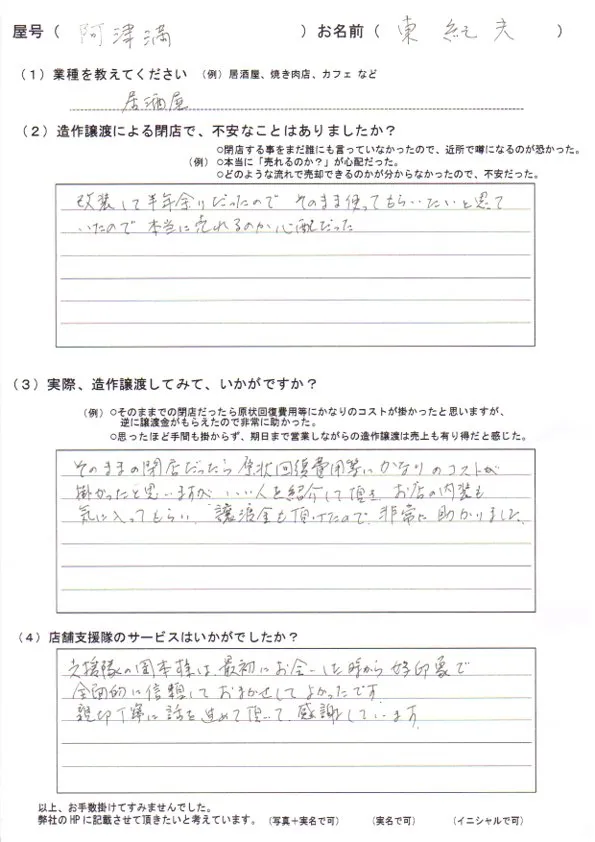 屋号（ 阿津満 ）お名前（ 東 紀夫 ）
（１）業種を教えてください （例）居酒屋、焼き肉店、カフェ など
居酒屋
（２）造作譲渡による閉店で、不安なことはありましたか？
○閉店する事をまだ誰にも言っていなかったので、近所で噂になるのが恐かった。
（例） ○本当に「売れるのか？」が心配だった。
○どのような流れで売却できるのかが分からなかったので、不安だった。
改装して半年余りだったので そのまま使ってもらいたいと思って
いたので 本当に売れるのか心配だった
（３）実際、造作譲渡してみて、いかがですか？
（例）○そのままでの閉店だったら原状回復費用等にかなりのコストが掛かったと思いますが、
逆に譲渡金がもらえたので非常に助かった。
○思ったほど手間も掛からず、期日まで営業しながらの造作譲渡は売上も有り得だと感じた。
そのままの閉店だったら 原状回復費用等にかなりのコストが
掛かったと思いますが いい人を紹介して頂き お店の内装も
気に入ってもらい 譲渡金も頂けたので 非常に助かりました。
（４）店舗支援隊のサービスはいかがでしたか？
支援隊の岡本様は、最初にお会いした時から好印象で
全面的に信頼しておまかせしてよかったです
親切丁寧に話を進めて頂いて 感謝しています。
以上、お手数掛けてすみませんでした。
弊社のHPに記載させて頂きたいと考えています。（写真＋実名で可） （実名で可） （イニシャルで可）